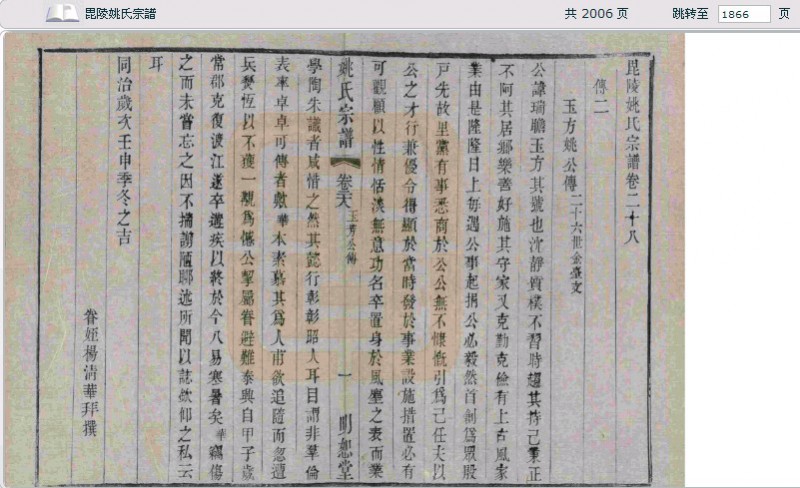 毘陵姚氏宗譜
共 2006 页
跳转至 1866 页
毘陵姚氏宗譜卷二十八
傳二
玉方姚公傳二十六世金臺文
公諱瑞聸玉方其號也沈靜質樸不習時趨其持己秉正
不阿其居鄉樂善好施其守家又克勤克儉有上古風家
業由是隆隆日上每遇公事起捐公必毅然首創爲眾殷
戸先故里黨有事悉商於公公無不慷慨引爲己任夫以
公之才行兼優令得顯於當時發於事業設施措置必有
可觀顧以性情恬淡無意功名卒置身於風塵之表而業
姚氏宗譜 卷二六 玉芳公傳 一 明恕堂
學陶朱識者咸惜之然其懿行彰彰昭人耳目謂非羣倫
表率卓卓可傳者歟華本素慕其爲人甫欲追隨而忽遭
兵燹恆以不獲一覩爲憾公挈屬眷避難泰興自甲子歲
常郡克復渡江遂卒遘疾以終於今八易寒暑矣華竊傷
之而未嘗忘之因不揣謭陋聊述所聞以誌欽仰之私云
耳
同治歲次壬申季冬之吉
眷姪楊清華拜撰